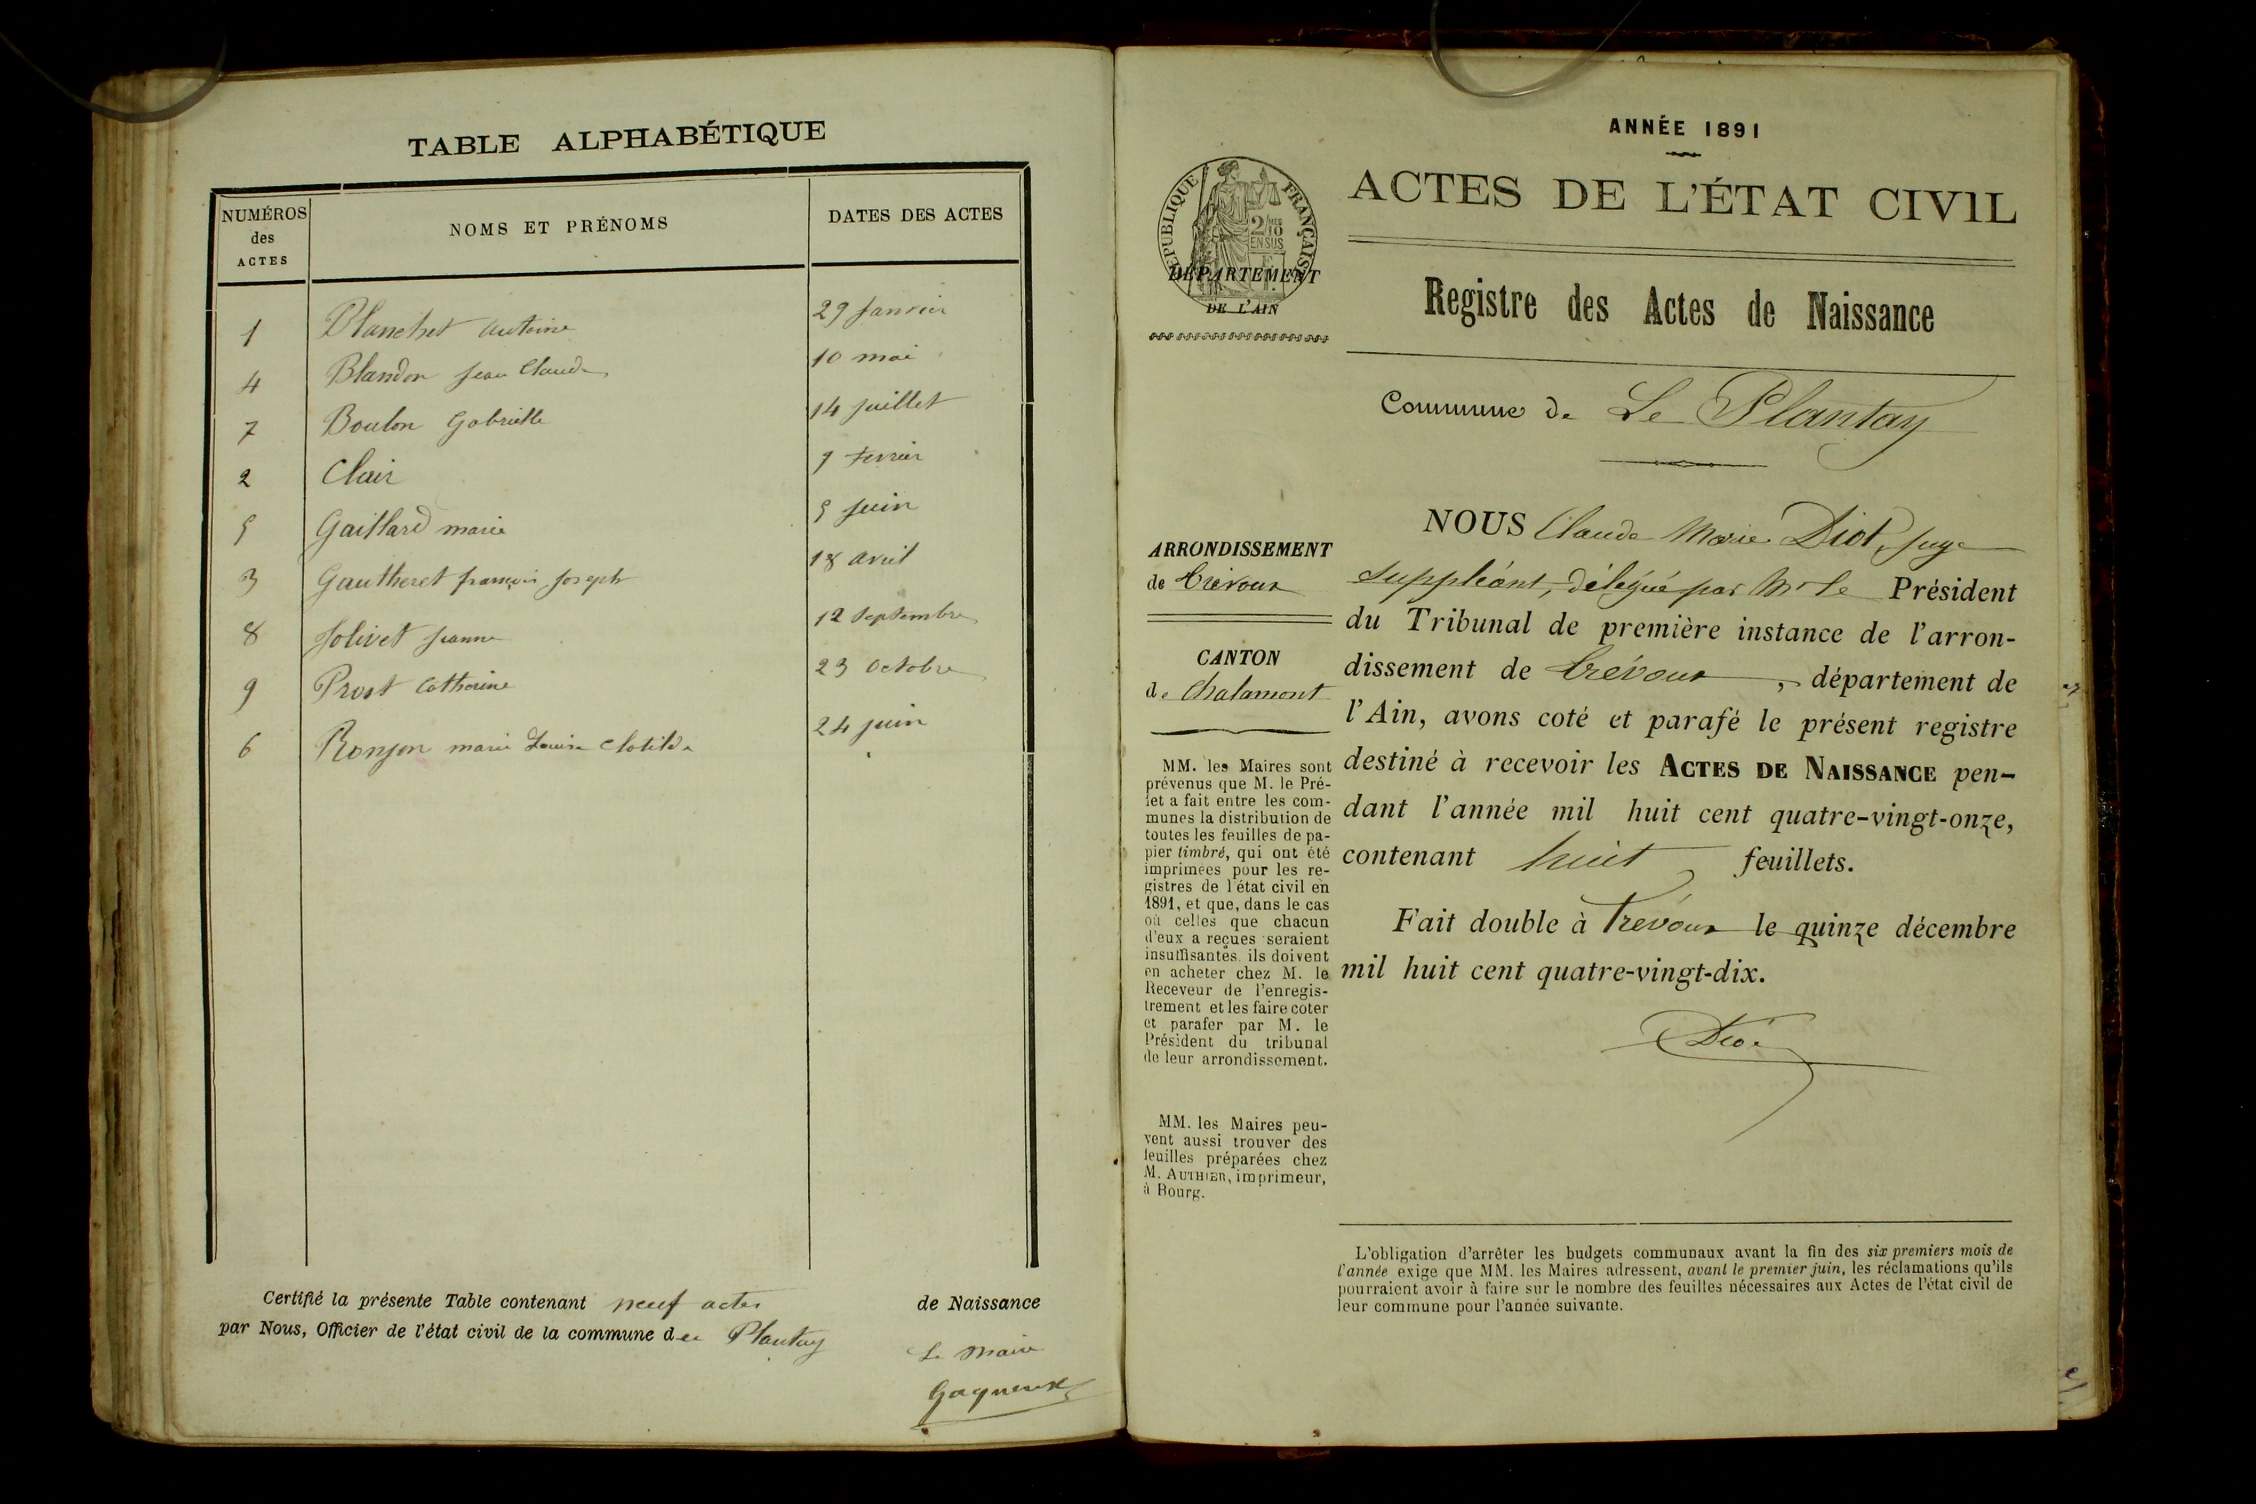 TABLE ALPHABÉTIQUE
NUMÉROS des ACTES
NOMS ET PRÉNOMS
DATES DES ACTES
1 Blanchet Antoine 29 Janvier
4 Blandon Jean Claude 10 mai
7 Boulon Gabrielle 14 Juillet
2 Clair 9 Fevrier
5 Gaillard marie 5 Juin
3 Gautheret françois Joseph 18 avril
8 Jolivet Jeanne 12 Septembre
9 Prost Catherine 23 Octobre
6 Ronjon marie Louise Clotilde 24 juin
Certifié la présente Table contenant neuf actes de Naissance
par Nous, Officier de l'état civil de la commune de Plantay
Le Maire
Gagneux
ANNÉE 1891
ACTES DE L'ÉTAT CIVIL
RÉPUBLIQUE FRANÇAISE
2/10 EN SUS
DÉPARTEMENT
DE L'AIN
Registre des Actes de Naissance
Commune de Le Plantay
ARRONDISSEMENT
de Trévoux
CANTON
de Chalamont
MM. les Maires sont
prévenus que M. le Pré-
fet a fait entre les com-
munes la distribution de
toutes les feuilles de pa-
pier timbré, qui ont été
imprimées pour les re-
gistres de l'état civil en
1891, et que, dans le cas
où celles que chacun
d'eux a reçues seraient
insuffisantes. ils doivent
en acheter chez M. le
Receveur de l'enregis-
trement et les faire coter
et parafer par M. le
Président du tribunal
de leur arrondissement.
MM. les Maires peu-
vent aussi trouver des
feuilles préparées chez
M. AUTHIER, imprimeur,
à Bourg.
NOUS Claude Marie Diot, Juge
suppléant, délégué par Mr le Président
du Tribunal de première instance de l'arron-
dissement de Trévoux, département de
l'Ain, avons coté et parafé le présent registre
destiné à recevoir les ACTES DE NAISSANCE pen-
dant l'année mil huit cent quatre-vingt-onze,
contenant huit feuillets.
Fait double à Trévoux le quinze décembre
mil huit cent quatre-vingt-dix.
Diot
L'obligation d'arrêter les budgets communaux avant la fin des six premiers mois de
l'année exige que MM. les Maires adressent, avant le premier juin, les réclamations qu'ils
pourraient avoir à faire sur le nombre des feuilles nécessaires aux Actes de l'état civil de
leur commune pour l'année suivante.